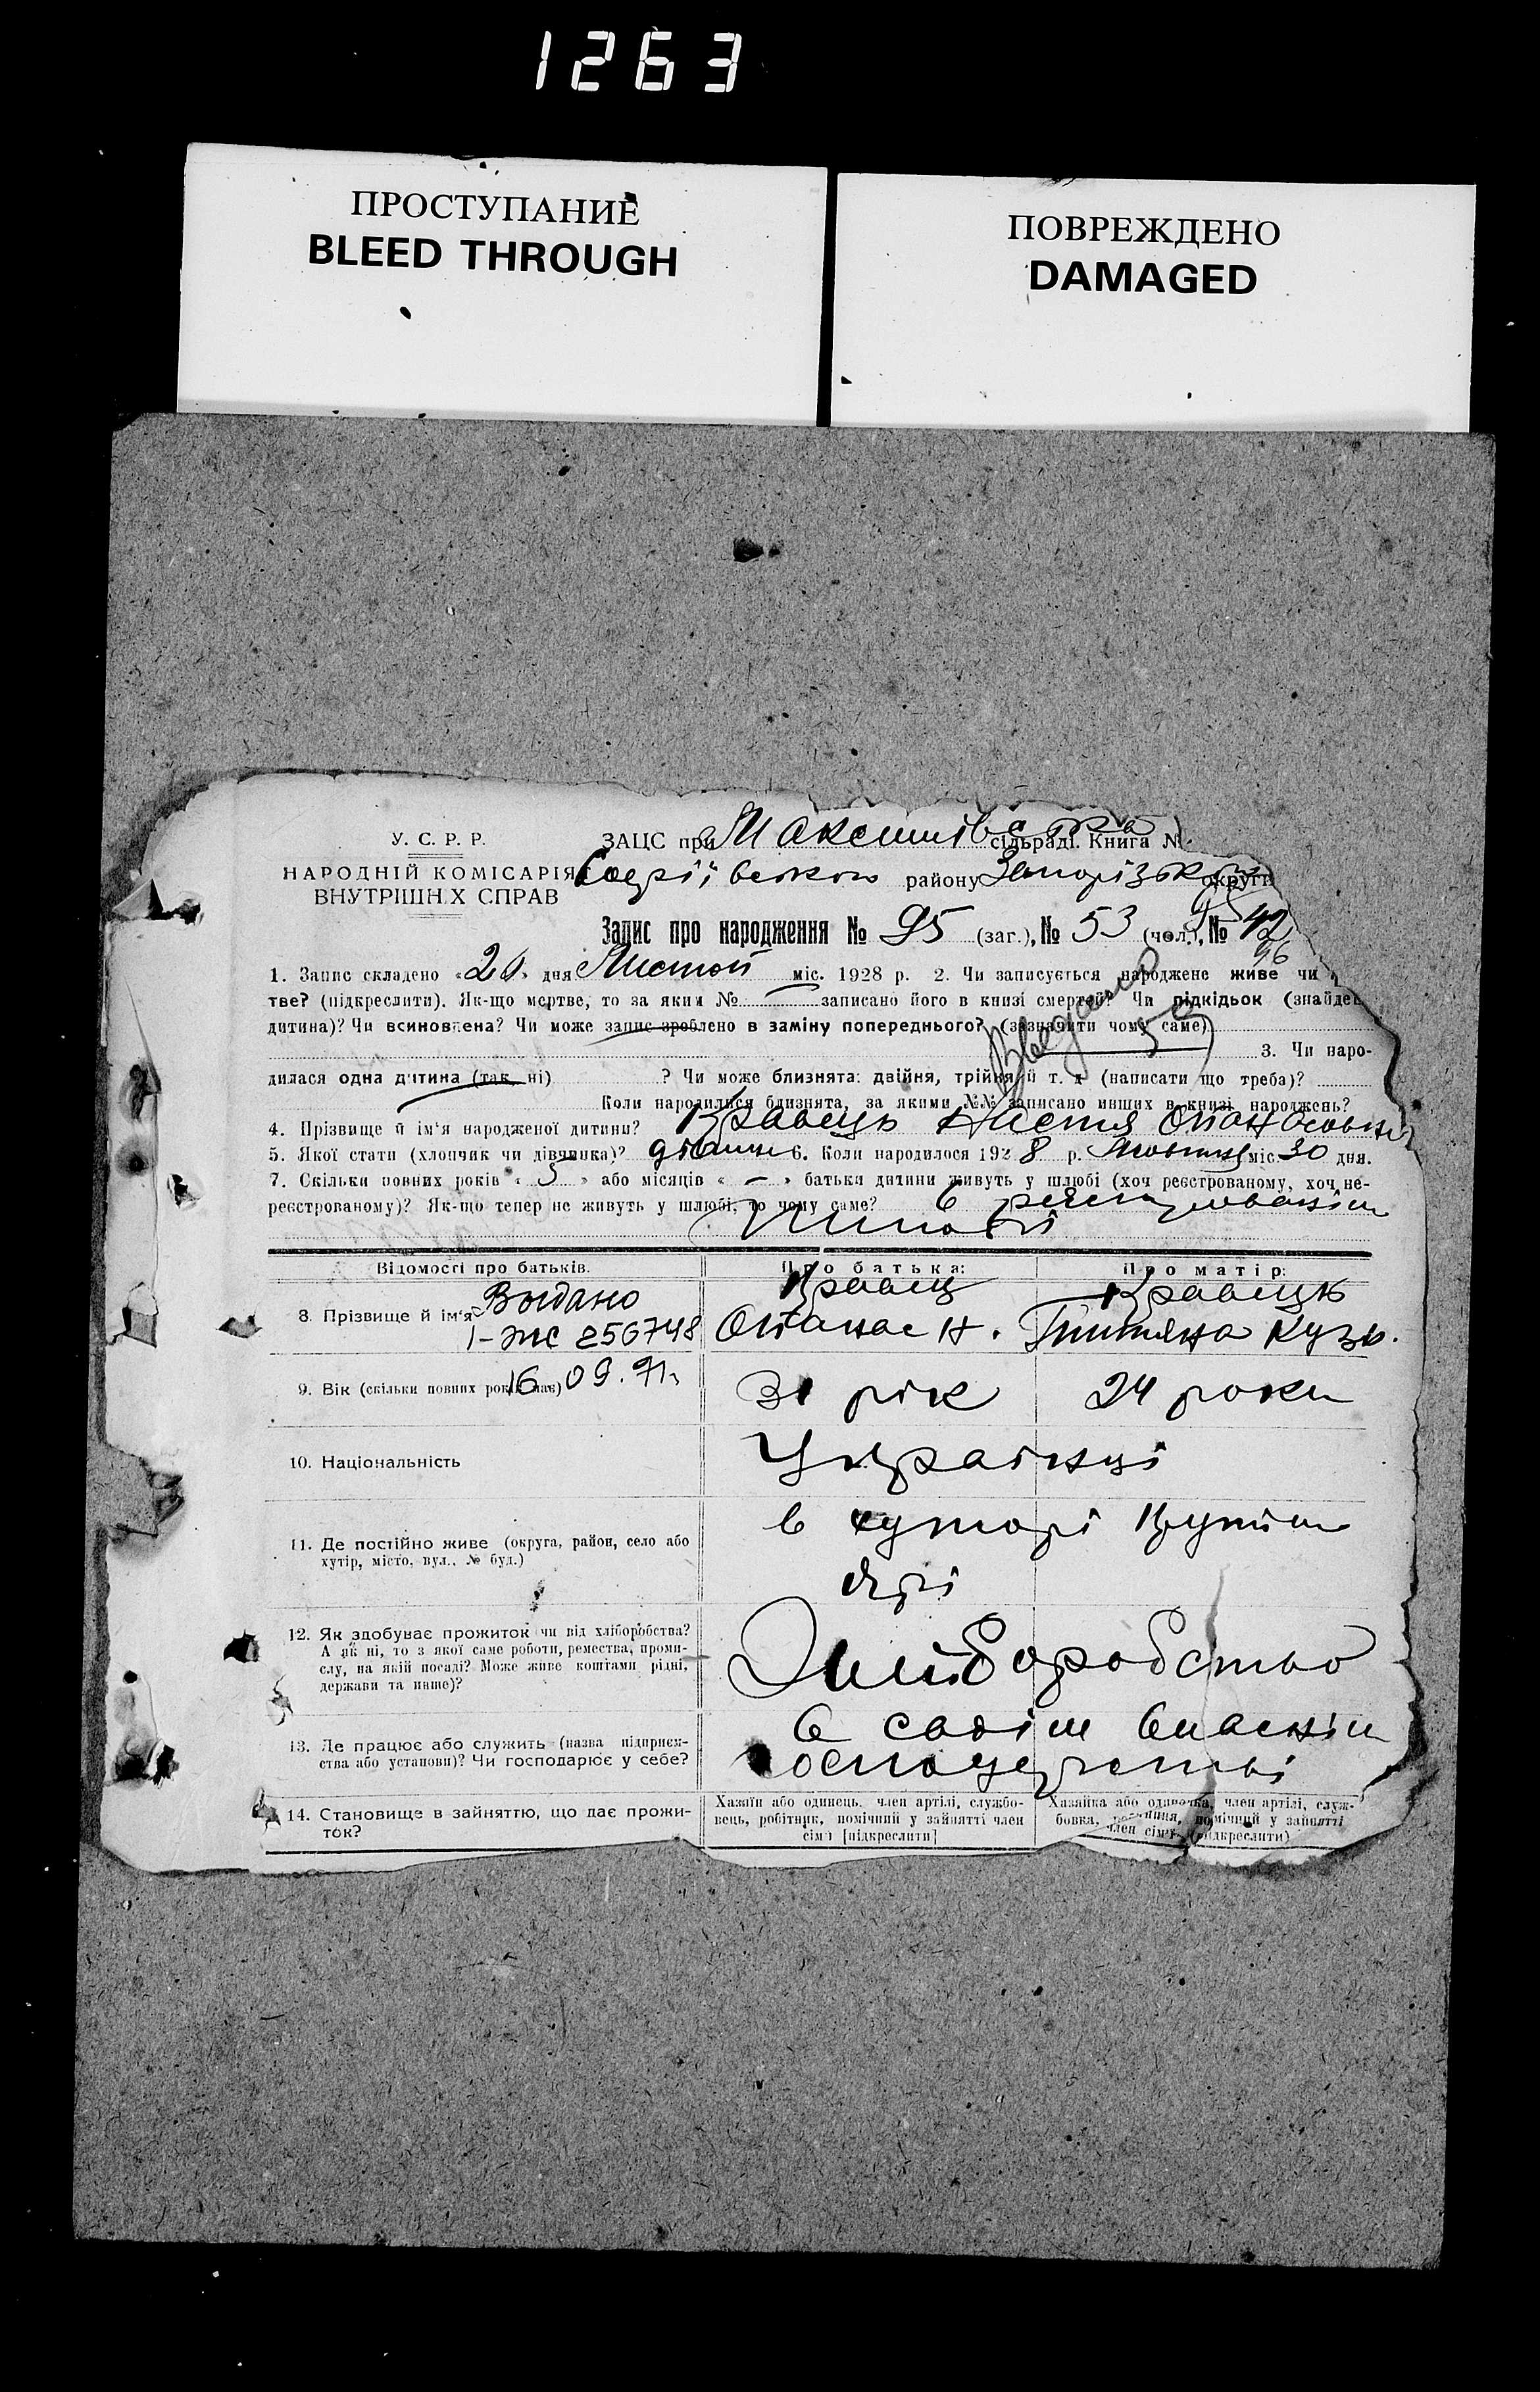 1263
ПРОСТУПАНИЕ
BLEED THROUGH
ПОВРЕЖДЕНО
DAMAGED
У. С. Р. Р.
НАРОДНІЙ КОМІСАРІЯ
ВНУТРІШН.Х СПРАВ
ЗАЦС при сільраді. Книга №
району Запорізьк округи
Запис про народження № 95 (заг.), № 53 (чол.), № 42
1. Запис складено «20» дня Листоп міс. 1928 р. 2. Чи записується народжене живе чи
тве? (підкреслити). Як-що мертве, то за яким № записано його в книзі смертей? Чи підкідьок (знайде
дитина)? Чи всиновлена? Чи може запис зроблено в заміну попереднього? (зазначити чому саме)
59
3. Чи наро-
дилася одна дитина (так, ні) ? Чи може близнята: двійня, трійня й т. д. (написати що треба)?
Коли народилися близнята, за якими №№ записано инших в книзі народжень?
4. Прізвище й ім'я народженої дитини? Кравець Настя
5. Якої стати (хлопчик чи дівчинка)? 6. Коли народилося 1928 р. Жовтня міс. 30 дня.
7. Скільки повних років «5» або місяців « – » батьки дитини живуть у шлюбі (хоч реєстрованому, хоч не-
реєстрованому)? Як-що тепер не живуть у шлюбі, то чому саме? в
шлюбі
Відомості про батьків. Про батька: Про матір:
8. Прізвище й ім'я Выдано Кравец Кравець
I-ЖС 256748 Опанас Н. Титяна Кузь.
9. Вік (скільки повних років має) 16.09.91г. 31 рік 24 роки
10. Національність Українці
11. Де постійно живе (округа, район, село або в хуторі
хутір, місто, вул., № буд.) Ярі
12. Як здобуває прожиток чи від хліборобства?
А як ні, то з якої саме роботи, ремества, проми-
слу, на якій посаді? Може живе коштами рідні,
держави та инше)?
Хліборобство
13. Де працює або служить (назва підприєм-
ства або установи)? Чи господарює у себе?
в своїм власнім
14. Становище в зайняттю, що дає прожи-
ток?
Хазяїн або одинець, член артілі, службо-
вець, робітник, помічний у зайнятті член
сім'ї [підкреслити]
Хазяйка або одиначка, член артілі, служ-
бовка, помічний у зайнятті
член сім'ї (підкреслити)